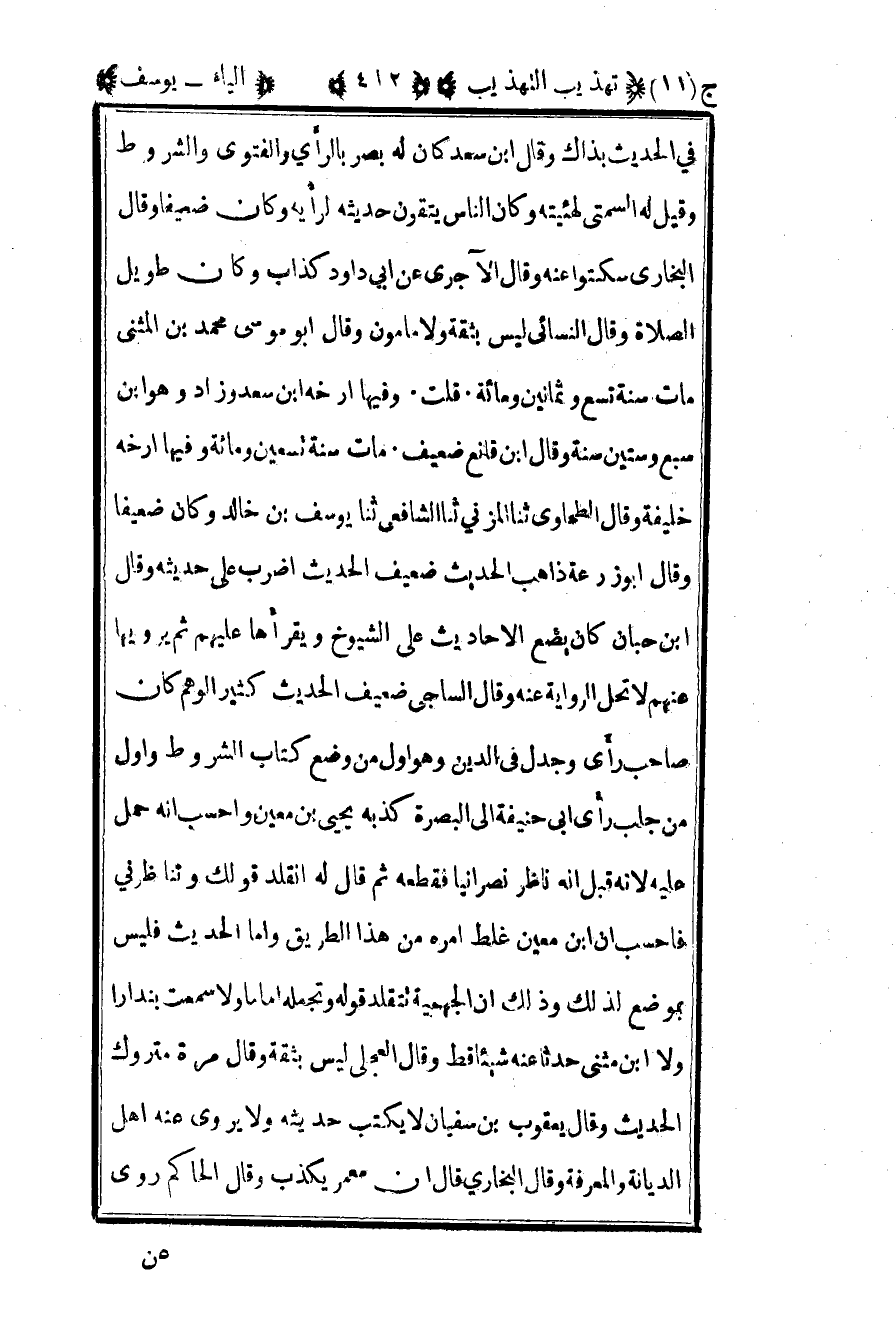 ج (١١) تهذيب التهذيب ٤١٢ الياء ـ يوسف
في الحديث بذاك وقال ابن سعد كان له بصر بالرأي والفتوى والشروط
وقيل له السمتى لهئيته وكان الناس يتقون حديثه لرأيه وكان ضعيفا وقال
البخارى سكتوا عنه وقال الآجرى عن ابي داود كذاب وكان طويل
الصلاة وقال النسائى ليس بثقة ولا مامون وقال ابو موسى محمد بن المثنى
مات سنة تسع وثمانين ومائة ٠ قلت ٠ وفيها ارخه ابن سعد وزاد وهو ابن
سبع وستين سنة وقال ابن قانع ضعيف ٠ مات سنة تسعين ومائة وفيها ارخه
خليفة وقال الطحاوى ثنا المزني ثنا الشافعى ثنا يوسف بن خالد وكان ضعيفا
وقال ابوزرعة ذاهب الحديث ضعيف الحديث اضرب على حديثه وقال
ابن حبان كان يضع الاحاديث على الشيوخ ويقرأها عليهم ثم يرويها
عنهم لا تحل الرواية عنه وقال الساجى ضعيف الحديث كثير الوهم كان
صاحب رأى وجدل فى الدين وهو اول من وضع كتاب الشروط واول
من جلب رأى ابى حنيفة الى البصرة كذبه يحيى بن معين واحسب انه حمل
عليه لانه قيل انه ناظر نصرانيا فقطعه ثم قال له اتقلد قولك وتناظرني
فاحسب ان ابن معين غلط امره من هذا الطريق واما الحديث فليس
بموضع لذلك وذلك ان الجهمية تتقلد قوله وتجعله اماما ولا سمعت بندارا
ولا ابن مثنى حدثا عنه شيئا قط وقال العجلى ليس بثقة وقال مرة متروك
الحديث وقال يعقوب بن سفيان لا يكتب حديثه ولا يروى عنه اهل
الديانة والمعرفة وقال البخاري قال ان معمر يكذب وقال الحاكم روى